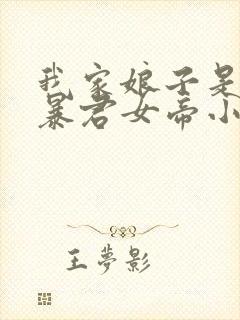 我家娘子是
暴君女帝小
王梦影